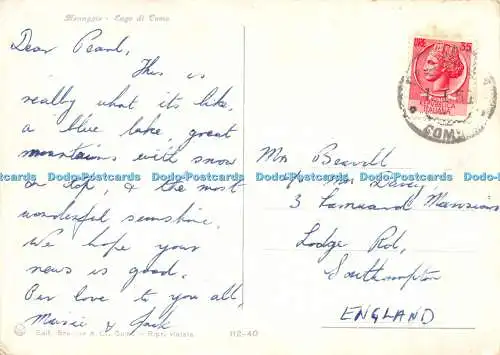 Menaggio - Lago di Como
Dear Pearl,
This is
really what its like,
a blue lake, great
mountains with snow
on top, & the most
wonderful sunshine.
We hope your
news is good.
Our love to you all,
& Jack
112-40
LIRE 35
ITALIANA
COMO
Mrs
c/o Mrs Davey
3 Mansions
Lodge Rd,
Southampton
ENGLAND
Dodo-Postcards Dodo-Postcards Dodo-Postcards Dodo-Postcards
Dodo-Postcards Dodo-Postcards Dodo-Postcards Dodo-Postcards